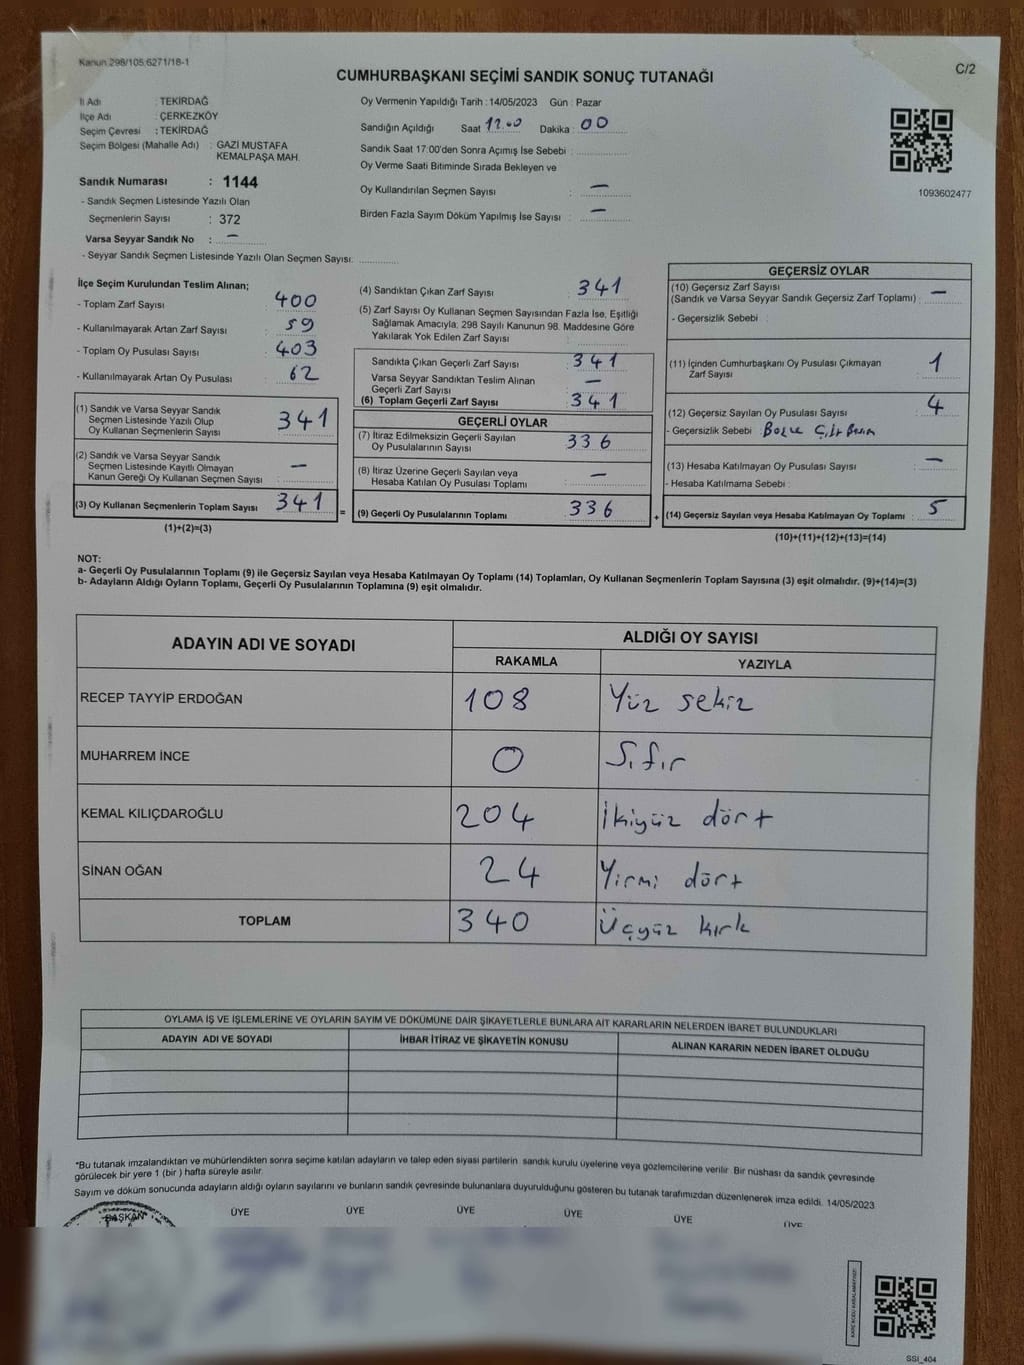 Kanun 298/105;6271/18-1
C/2
CUMHURBAŞKANI SEÇİMİ SANDIK SONUÇ TUTANAĞI
İl Adı : TEKİRDAĞ
İlçe Adı : ÇERKEZKÖY
Seçim Çevresi : TEKİRDAĞ
Seçim Bölgesi (Mahalle Adı) : GAZİ MUSTAFA
KEMALPAŞA MAH.
Sandık Numarası : 1144
- Sandık Seçmen Listesinde Yazılı Olan
Seçmenlerin Sayısı : 372
Varsa Seyyar Sandık No : –
- Seyyar Sandık Seçmen Listesinde Yazılı Olan Seçmen Sayısı:
Oy Vermenin Yapıldığı Tarih : 14/05/2023 Gün : Pazar
Sandığın Açıldığı Saat 17.00 Dakika : 00
Sandık Saat 17:00'den Sonra Açımış İse Sebebi :
Oy Verme Saati Bitiminde Sırada Bekleyen ve
Oy Kullandırılan Seçmen Sayısı : –
Birden Fazla Sayım Döküm Yapılmış İse Sayısı : –
1093602477
İlçe Seçim Kurulundan Teslim Alınan;
- Toplam Zarf Sayısı : 400
- Kullanılmayarak Artan Zarf Sayısı : 59
- Toplam Oy Pusulası Sayısı : 403
- Kullanılmayarak Artan Oy Pusulası : 62
(1) Sandık ve Varsa Seyyar Sandık
Seçmen Listesinde Yazılı Olup
Oy Kullanan Seçmenlerin Sayısı : 341
(2) Sandık ve Varsa Seyyar Sandık
Seçmen Listesinde Kayıtlı Olmayan
Kanun Gereği Oy Kullanan Seçmen Sayısı : –
(3) Oy Kullanan Seçmenlerin Toplam Sayısı : 341
(1)+(2)=(3)
(4) Sandıktan Çıkan Zarf Sayısı : 341
(5) Zarf Sayısı Oy Kullanan Seçmen Sayısından Fazla İse, Eşitliği
Sağlamak Amacıyla; 298 Sayılı Kanunun 98. Maddesine Göre
Yakılarak Yok Edilen Zarf Sayısı :
Sandıkta Çıkan Geçerli Zarf Sayısı : 341
Varsa Seyyar Sandıktan Teslim Alınan
Geçerli Zarf Sayısı : –
(6) Toplam Geçerli Zarf Sayısı : 341
GEÇERLİ OYLAR
(7) İtiraz Edilmeksizin Geçerli Sayılan
Oy Pusulalarının Sayısı : 336
(8) İtiraz Üzerine Geçerli Sayılan veya
Hesaba Katılan Oy Pusulası Toplamı : –
= (9) Geçerli Oy Pusulalarının Toplamı : 336
GEÇERSİZ OYLAR
(10) Geçersiz Zarf Sayısı
(Sandık ve Varsa Seyyar Sandık Geçersiz Zarf Toplamı) : –
- Geçersizlik Sebebi :
(11) İçinden Cumhurbaşkanı Oy Pusulası Çıkmayan
Zarf Sayısı : 1
(12) Geçersiz Sayılan Oy Pusulası Sayısı : 4
- Geçersizlik Sebebi :
(13) Hesaba Katılmayan Oy Pusulası Sayısı : –
- Hesaba Katılmama Sebebi :
+ (14) Geçersiz Sayılan veya Hesaba Katılmayan Oy Toplamı : 5
(10)+(11)+(12)+(13)=(14)
NOT:
a- Geçerli Oy Pusulalarının Toplamı (9) ile Geçersiz Sayılan veya Hesaba Katılmayan Oy Toplamı (14) Toplamları, Oy Kullanan Seçmenlerin Toplam Sayısına (3) eşit olmalıdır. (9)+(14)=(3)
b- Adayların Aldığı Oyların Toplamı, Geçerli Oy Pusulalarının Toplamına (9) eşit olmalıdır.
ADAYIN ADI VE SOYADI
ALDIĞI OY SAYISI
RAKAMLA YAZIYLA
RECEP TAYYİP ERDOĞAN 108 Yüz sekiz
MUHARREM İNCE 0 Sıfır
KEMAL KILIÇDAROĞLU 204 İkiyüz dört
SİNAN OĞAN 24 Yirmi dört
TOPLAM 340 Üçyüz kırk
OYLAMA İŞ VE İŞLEMLERİNE VE OYLARIN SAYIM VE DÖKÜMÜNE DAİR ŞİKAYETLERLE BUNLARA AİT KARARLARIN NELERDEN İBARET BULUNDUKLARI
ADAYIN ADI VE SOYADI İHBAR İTİRAZ VE ŞİKAYETİN KONUSU ALINAN KARARIN NEDEN İBARET OLDUĞU
*Bu tutanak imzalandıktan ve mühürlendikten sonra seçime katılan adayların ve talep eden siyasi partilerin sandık kurulu üyelerine veya gözlemcilerine verilir. Bir nüshası da sandık çevresinde
görülecek bir yere 1 (bir) hafta süreyle asılır.
Sayım ve döküm sonucunda adayların aldığı oyların sayılarını ve bunların sandık çevresinde bulunanlara duyurulduğunu gösteren bu tutanak tarafımızdan düzenlenerek imza edildi. 14/05/2023
BAŞKAN ÜYE ÜYE ÜYE ÜYE ÜYE ÜYE
SSI_404